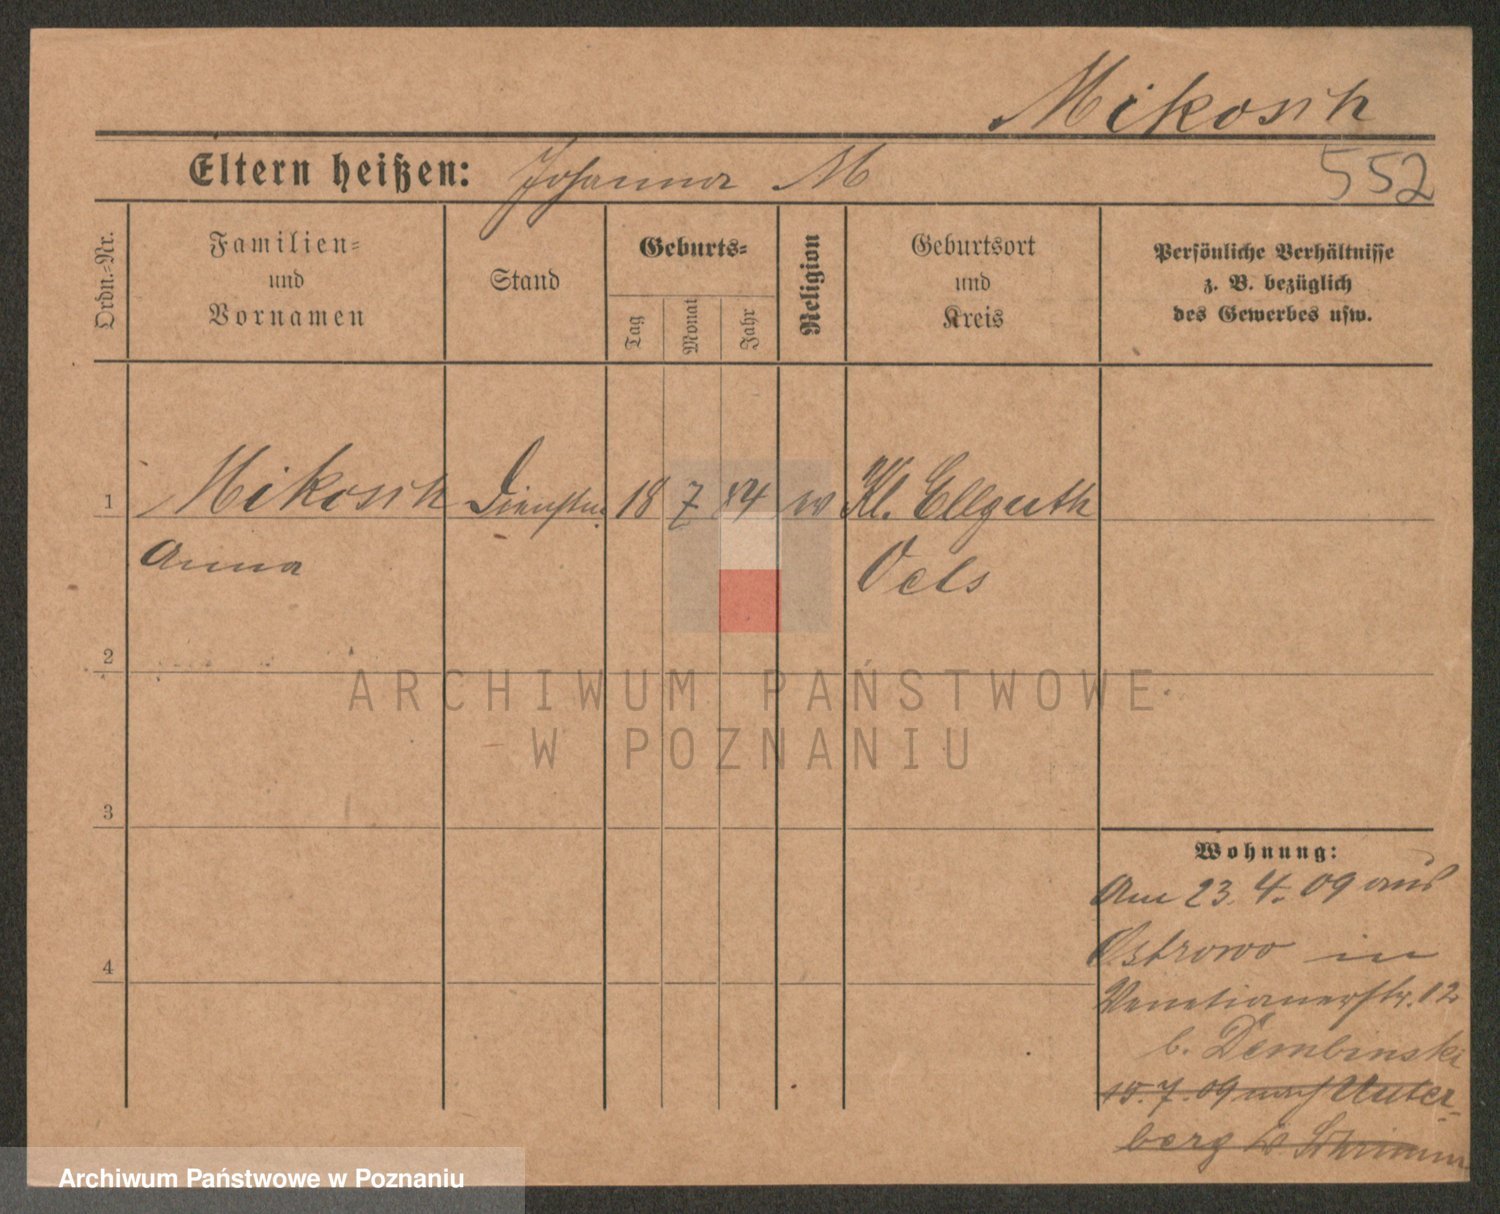 Mikosch
Eltern heißen: Johanna M
552
Ordn.-Nr.
Familien-
und
Vornamen
Stand
Geburts-
Tag
Monat
Jahr
Religion
Geburtsort
und
Kreis
Persönliche Verhältnisse
z. B. bezüglich
des Gewerbes usw.
1 Mikosch Dienstm. 18 7 84 ev Kl. Ellguth
Anna Oels
2
ARCHIWUM PAŃSTWOWE
W POZNANIU
3
Wohnung:
Am 23. 4. 09 aus
Ostrowo in
4
Venetianerstr. 12
b. Dembinski
15. 7. 09 nach Unter-
berg Kr. Schrimm
Archiwum Państwowe w Poznaniu